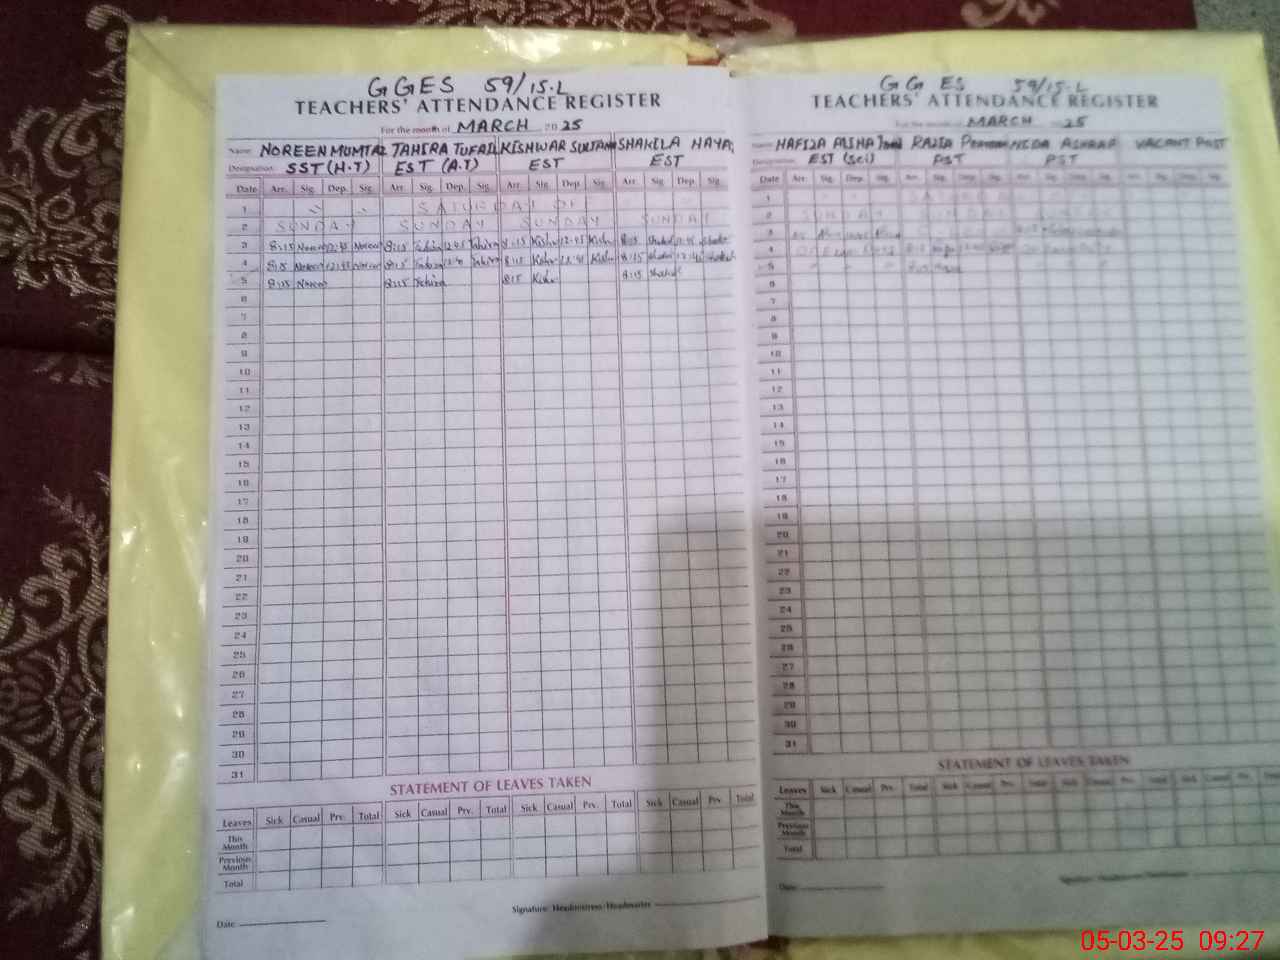 GGES 59/15.L
TEACHERS' ATTENDANCE REGISTER
For the month of MARCH 2025
Name NOREEN MUMTAZ TAHIRA TUFAIL KISHWAR SULTAN SHAKILA HAYA
Designation SST (H.T) EST (A.T) EST EST
Date Arr. Sig. Dep. Sig. Arr. Sig. Dep. Sig. Arr. Sig. Dep. Sig. Arr. Sig. Dep. Sig.
1 SATURDAY OF
2 SUNDAY SUNDAY SUNDAY SUNDAY
3 8:15 Noreen 12:45 Noreen 8:15 Tahira 12:45 Tahira 8:15 Kishw 12:45 Kishw 8:15 Shakil 12:45 Shakil
4 8:15 Noreen 12:45 Noreen 8:15 Tahira Tahira 8:15 Kishw 12:45 Kishw 8:15 Shakil 12:45 Shakil
5 8:15 Noreen 8:15 Tahira 8:15 Kishw 8:15 Shakil
6
7
8
9
10
11
12
13
14
15
16
17
18
19
20
21
22
23
24
25
26
27
28
29
30
31
STATEMENT OF LEAVES TAKEN
Leaves Sick Casual Prv. Total Sick Casual Prv. Total Sick Casual Prv. Total Sick Casual Prv. Total
This Month
Previous Month
Total
Signature: Headmistress/Headmaster
Date
GGES 59/15.L
TEACHERS' ATTENDANCE REGISTER
For the month of MARCH 25
Name HAFIZA AISHA RAZIA NIDA ASHRAF VACANT POST
Designation EST (Sci) PST PST
Date Arr. Sig. Dep. Sig. Arr. Sig. Dep. Sig. Arr. Sig. Dep. Sig. Arr. Sig. Dep. Sig.
1 SATURDAY
2 SUNDAY SUNDAY
3
4
5
6
7
8
9
10
11
12
13
14
15
16
17
18
19
20
21
22
23
24
25
26
27
28
29
30
31
STATEMENT OF LEAVES TAKEN
Leaves Sick Casual Prv. Total Sick Casual Prv. Total Sick Casual Prv. Total Sick Casual Prv.
This Month
Previous Month
Total
Date
Signature: Headmistress/Headmaster
05-03-25 09:27